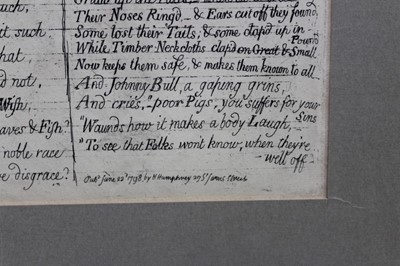 such,
it such
hat,
d not,
Wish,
aves & Fish?
noble race
e disgrace?
Their Noses Ring'd — & Ears cut off they found,
Some lost their Tails, & some clap'd up in Pound
While Timber Neckcloths clap'd on Great & Small
Now keeps them safe, & makes them known to all
And Johnny Bull, a gaping grins,
And cries, "poor Pigs, you suffers for your Sins
"Wounds how it makes a body Laugh,
"To see that Folks wont know, when they're well off
Pubd. June 22d 1798, by H Humphrey 27 St James Street